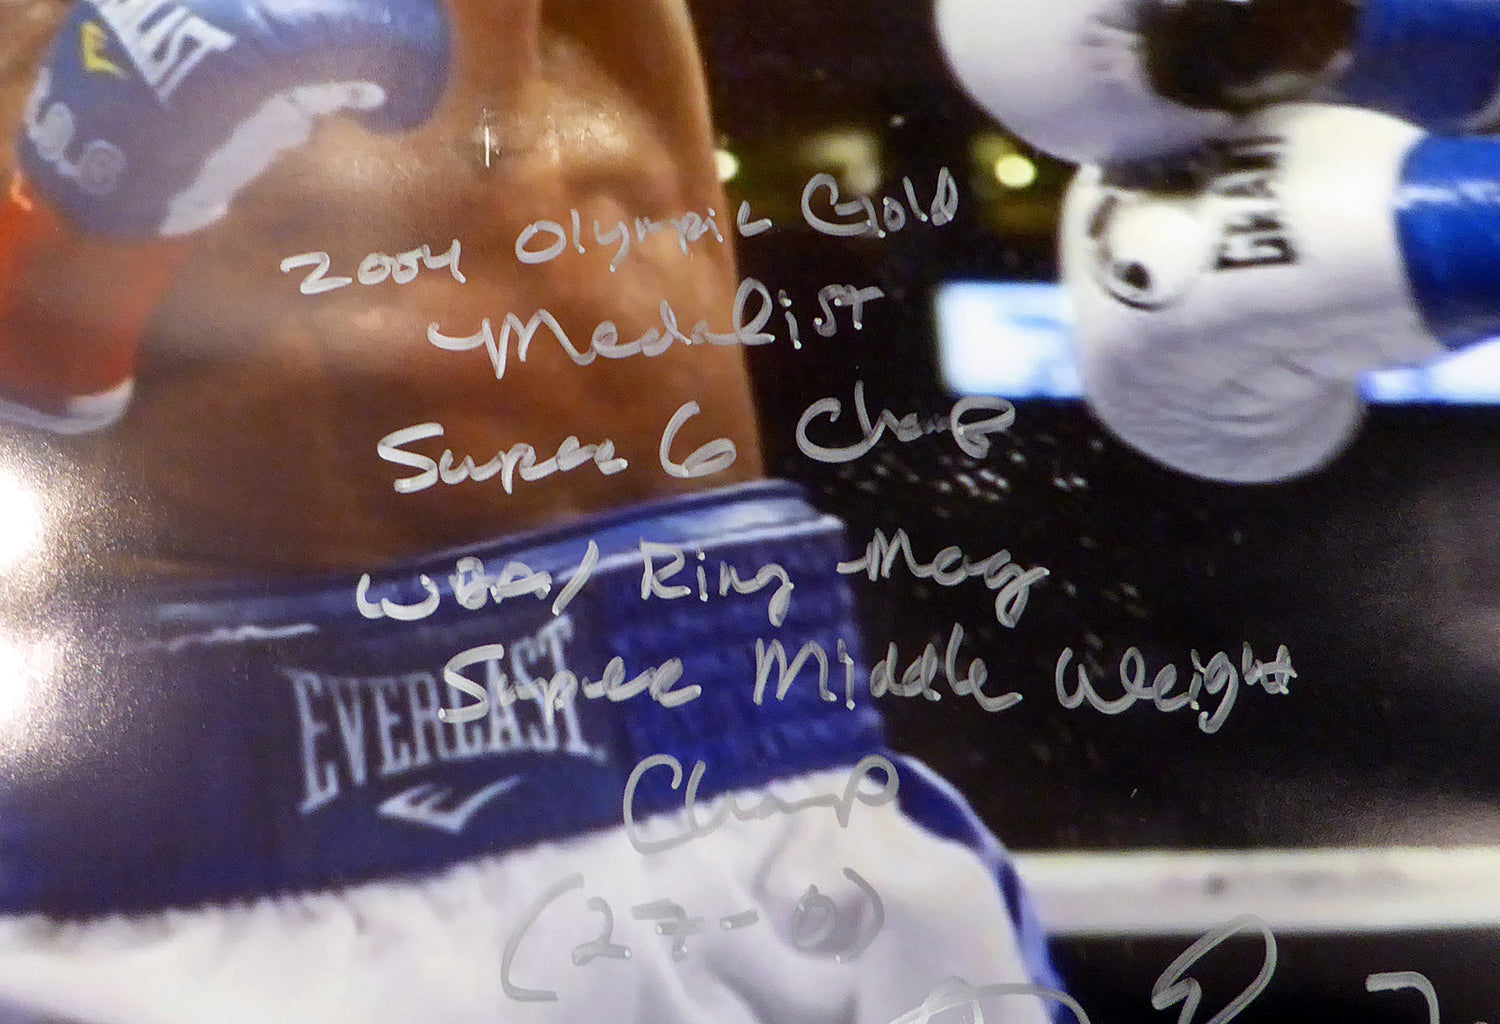 2004 Olympic Gold
Medalist
Super 6 Champ
WBA/ Ring Mag
Super Middle Weight
EVERLAST
Champ
(27-0)